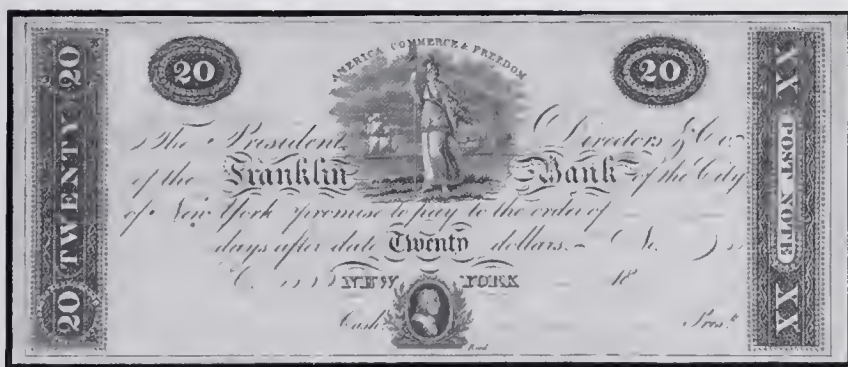 AMERICA COMMERCE & FREEDOM
20
20
20 TWENTY 20
XX POST NOTE XX
The President, Directors & Co.
of the Franklin Bank of the City
of New York promise to pay to the order of
days after date Twenty dollars.
NEW YORK 18
Cash.r
Pres.t